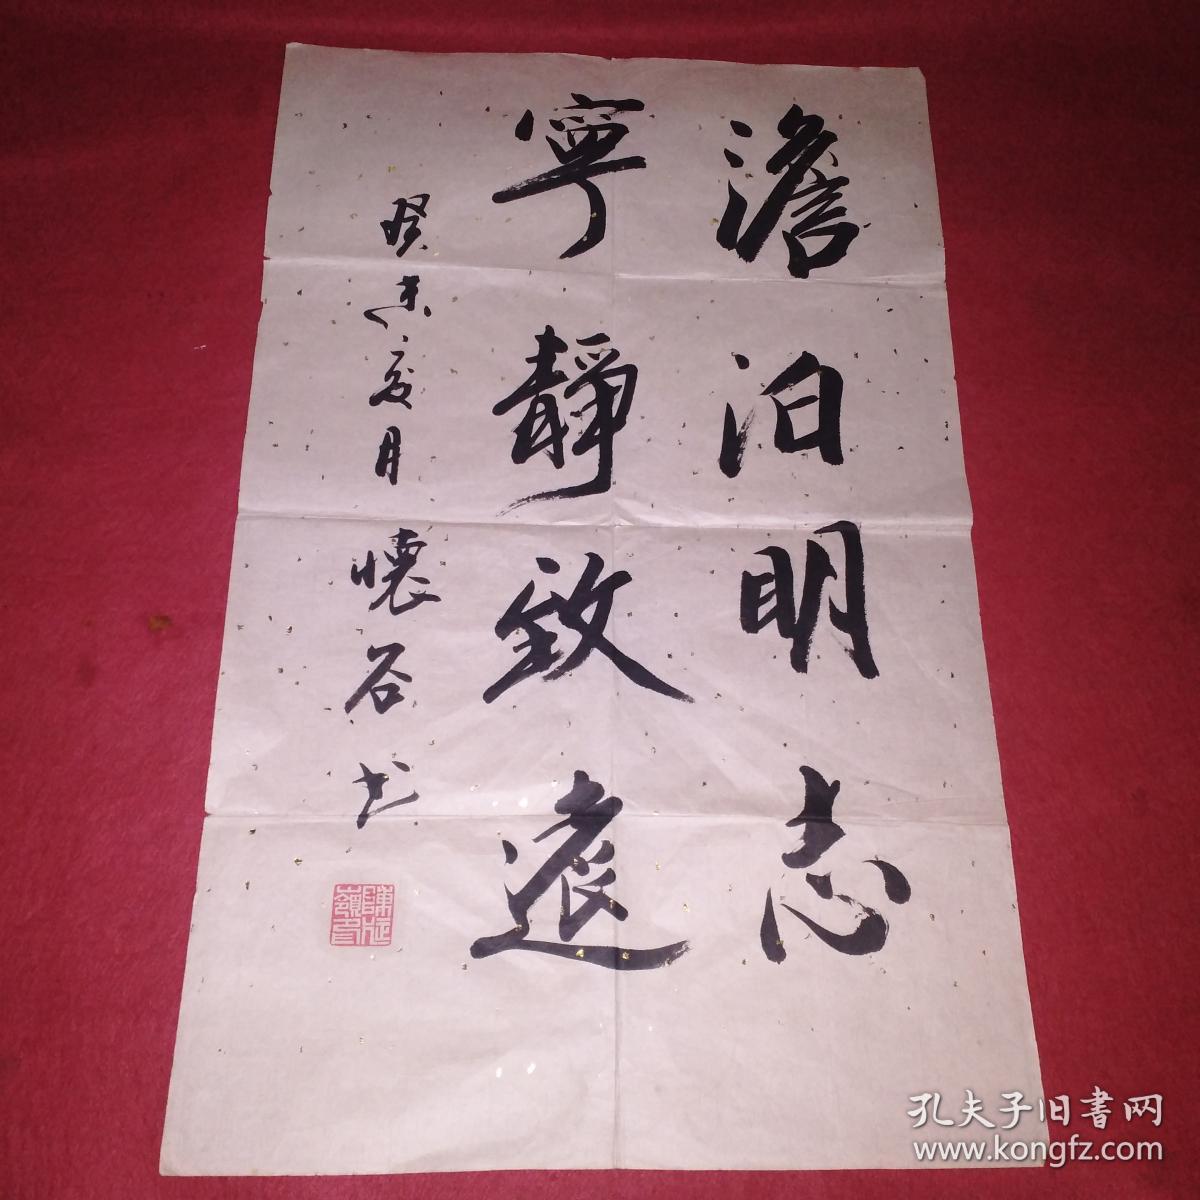 澹泊明志
寧靜致遠
癸未夏月 懷谷书
孔夫子旧書网
www.kongfz.com